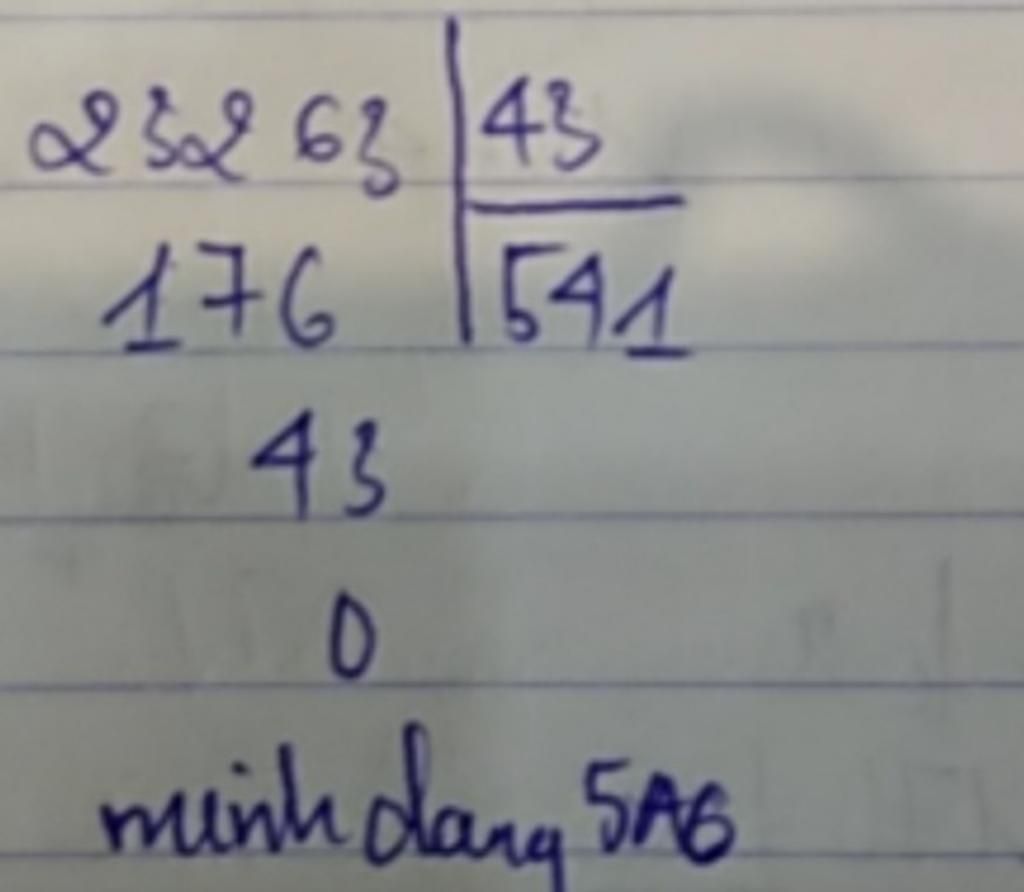 23263 43
176 541
43
0
minh dang 5A6